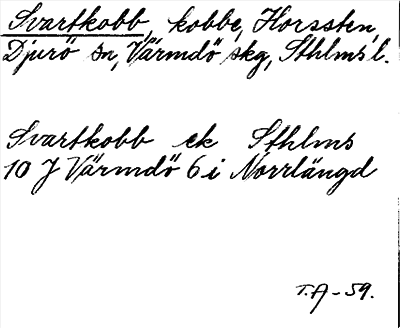 Svartkobb, kobbe, Horssten,
Djurö sn, Värmdö skg, Sthlms l.
Svartkobb ek Sthlms
10 J Värmdö 6 i Norrlängd
T.A-59.